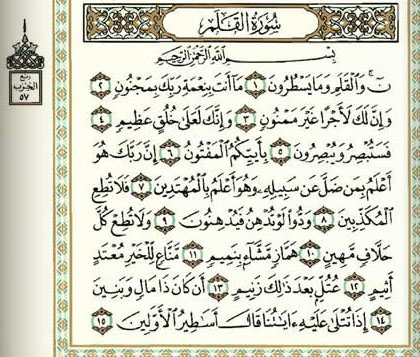 سُورَةُ القَلَمِ
بِسْمِ اللَّهِ الرَّحْمَٰنِ الرَّحِيمِ
نٓ ۚ وَالْقَلَمِ وَمَا يَسْطُرُونَ ١ مَا أَنتَ بِنِعْمَةِ رَبِّكَ بِمَجْنُونٍ ٢
وَإِنَّ لَكَ لَأَجْرًا غَيْرَ مَمْنُونٍ ٣ وَإِنَّكَ لَعَلَىٰ خُلُقٍ عَظِيمٍ ٤
فَسَتُبْصِرُ وَيُبْصِرُونَ ٥ بِأَييِّكُمُ الْمَفْتُونُ ٦ إِنَّ رَبَّكَ هُوَ
أَعْلَمُ بِمَن ضَلَّ عَن سَبِيلِهِ وَهُوَ أَعْلَمُ بِالْمُهْتَدِينَ ٧ فَلَا تُطِعِ
الْمُكَذِّبِينَ ٨ وَدُّوا لَوْ تُدْهِنُ فَيُدْهِنُونَ ٩ وَلَا تُطِعْ كُلَّ
حَلَّافٍ مَّهِينٍ ١٠ هَمَّازٍ مَّشَّاءٍ بِنَمِيمٍ ١١ مَّنَّاعٍ لِّلْخَيْرِ مُعْتَدٍ
أَثِيمٍ ١٢ عُتُلٍّ بَعْدَ ذَٰلِكَ زَنِيمٍ ١٣ أَن كَانَ ذَا مَالٍ وَبَنِينَ
١٤ إِذَا تُتْلَىٰ عَلَيْهِ ءَايَٰتُنَا قَالَ أَسَٰطِيرُ الْأَوَّلِينَ ١٥
ربع
الحزب
٥٧